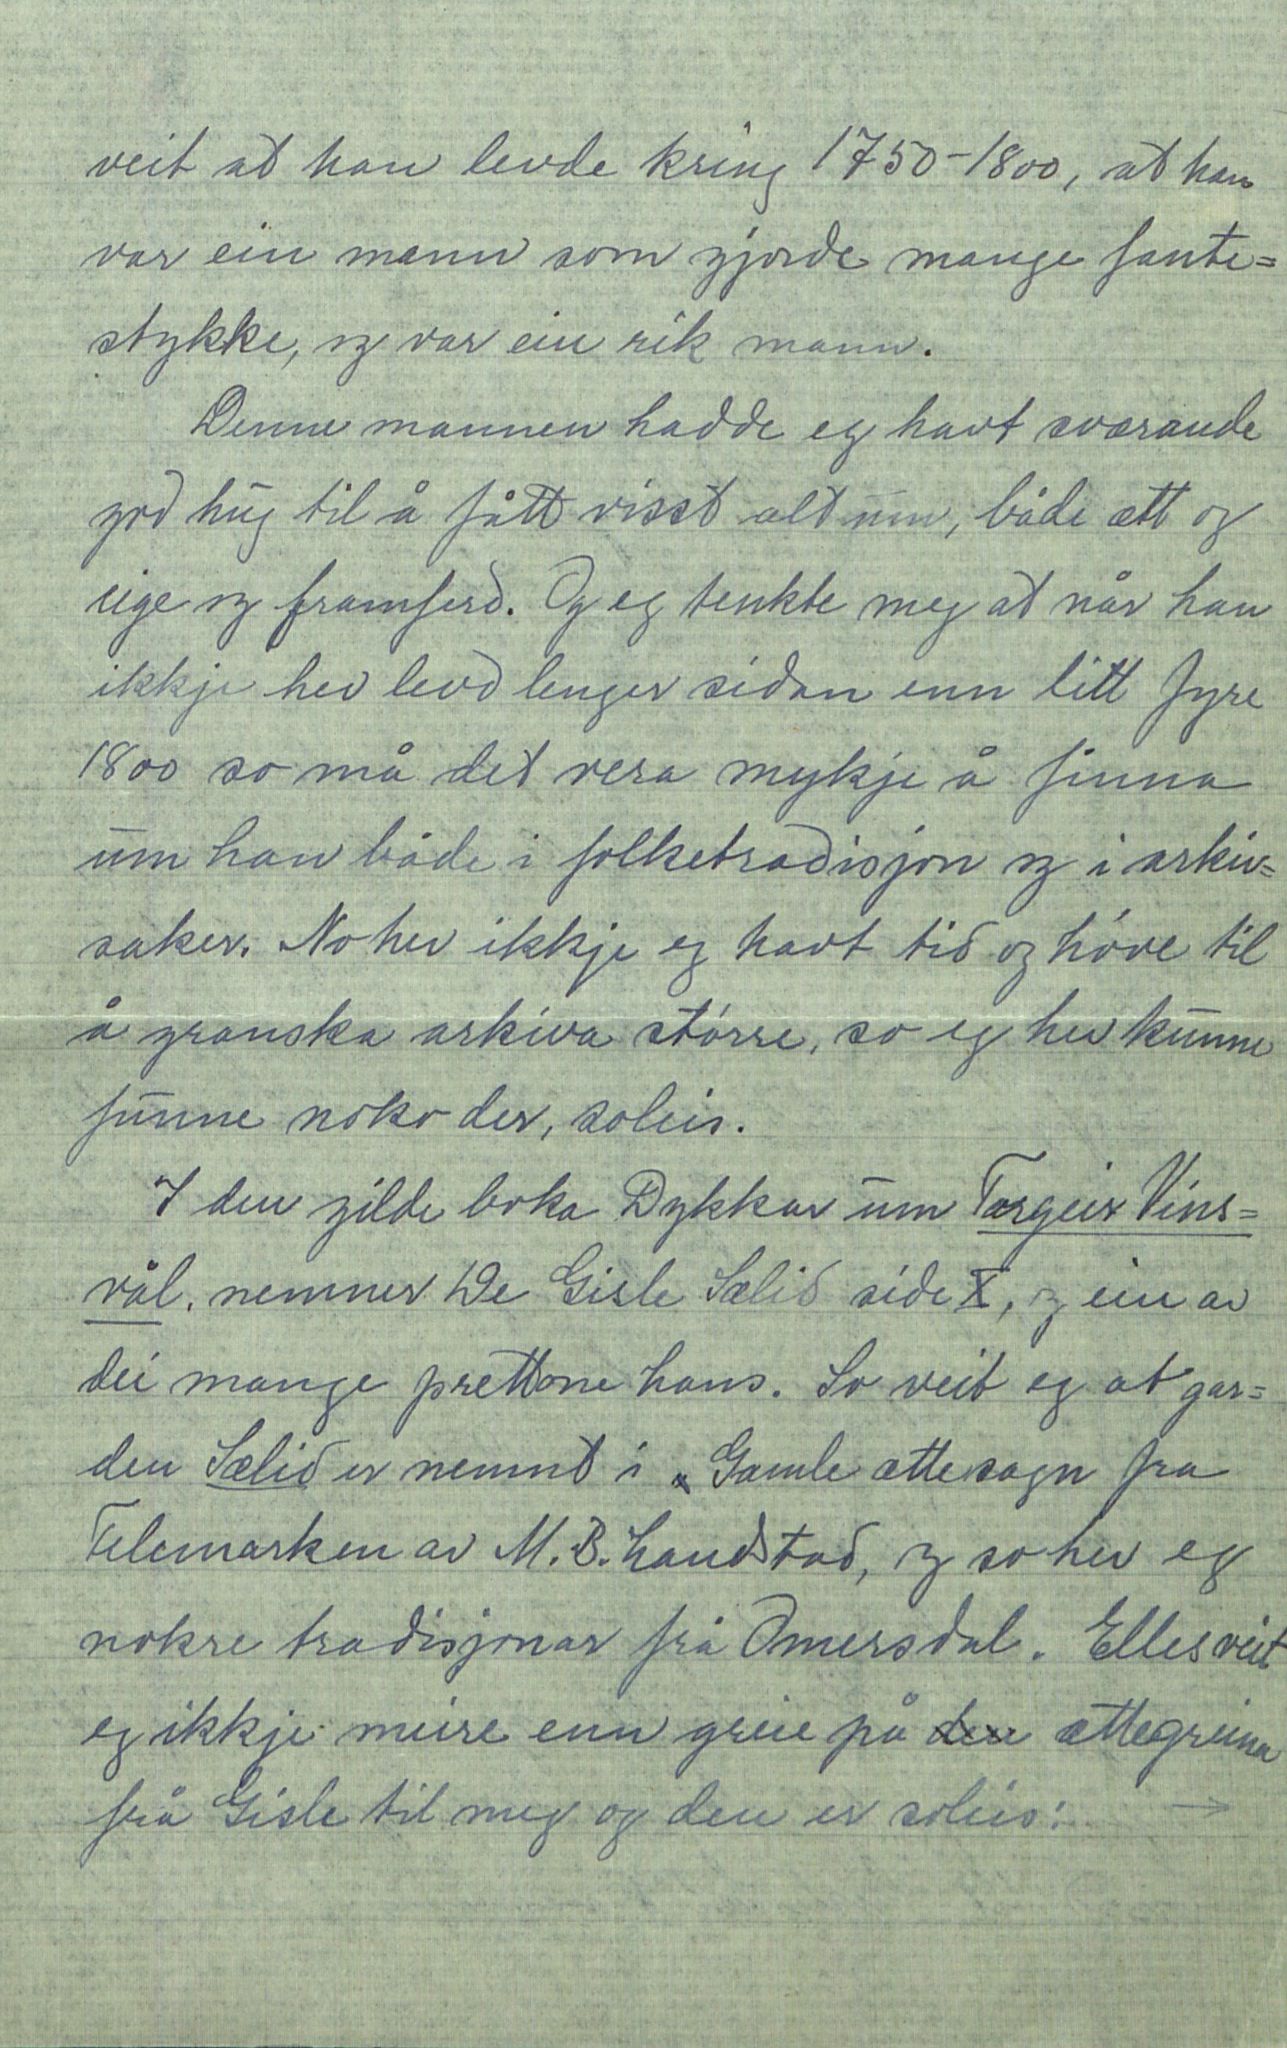 veit at han levde kring 1750-1800, at han
var ein mann som gjorde mange fante=
stykke, og var ein rik mann.
Denne mannen hadde eg havt sværande
god hug til å fått visst alt um, både ætt og
eige og framferd. Og eg tenkte meg at når han
ikkje hev levd lenger sidan enn litt fyre
1800 so må det vera mykje å finna
um han både i folketradisjon og i arkiv=
saker. No hev ikkje eg havt tid og høve til
å granska arkiva større, so eg hev kunne
funne noko der, soleis.
I den gilde boka Dykkar um Torgeir Vins=
vål. nemner De Gisle Sælid side X, og ein av
dei mange prettone hans. So veit eg at gar=
den Sælid er nemnt i Gamle ættesogn fra
Telemarken av M.B. Landstad, og so hev eg
nokre tradisjonar frå Åmersdal. Elles veit
eg ikkje meire enn greie på den ættegreina
frå Gisle til meg og den er soleis: →